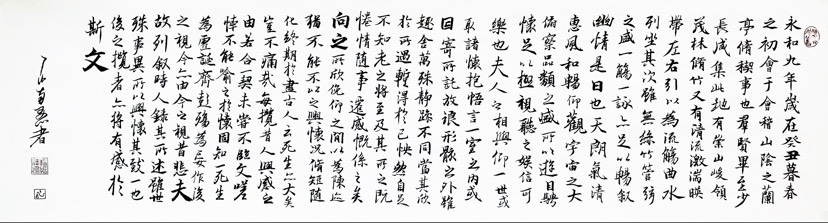 永和九年歲在癸丑暮春
之初會于會稽山陰之蘭
亭脩稧事也羣賢畢至少
長咸集此地有崇山峻領
茂林脩竹又有清流激湍映
帶左右引以為流觴曲水
列坐其次雖無絲竹管弦
之盛一觴一詠亦足以暢叙
幽情是日也天朗氣清
惠風和暢仰觀宇宙之大
俯察品類之盛所以遊目騁
懷足以極視聽之娛信可
樂也夫人之相與仰一世或
取諸懷抱悟言一室之內或
因寄所託放浪形骸之外雖
趣舍萬殊靜躁不同當其欣
於所遇暫得於己怏然自足
不知老之將至及其所之既
惓情隨事遷感慨係之矣
向之所欣俛仰之間以為陳迹
猶不能不以之興懷況脩短隨
化終期於盡古人云死生亦大矣
豈不痛哉每攬昔人興感之
由若合契未嘗不臨文嗟
悼不能喻之於懷固知一死生
為虛誕齊彭殤為妄作後
之視今亦由今之視昔悲夫
故列叙時人錄其所述雖世
殊事異所以興懷其致一也
後之攬者亦將有感於
斯文